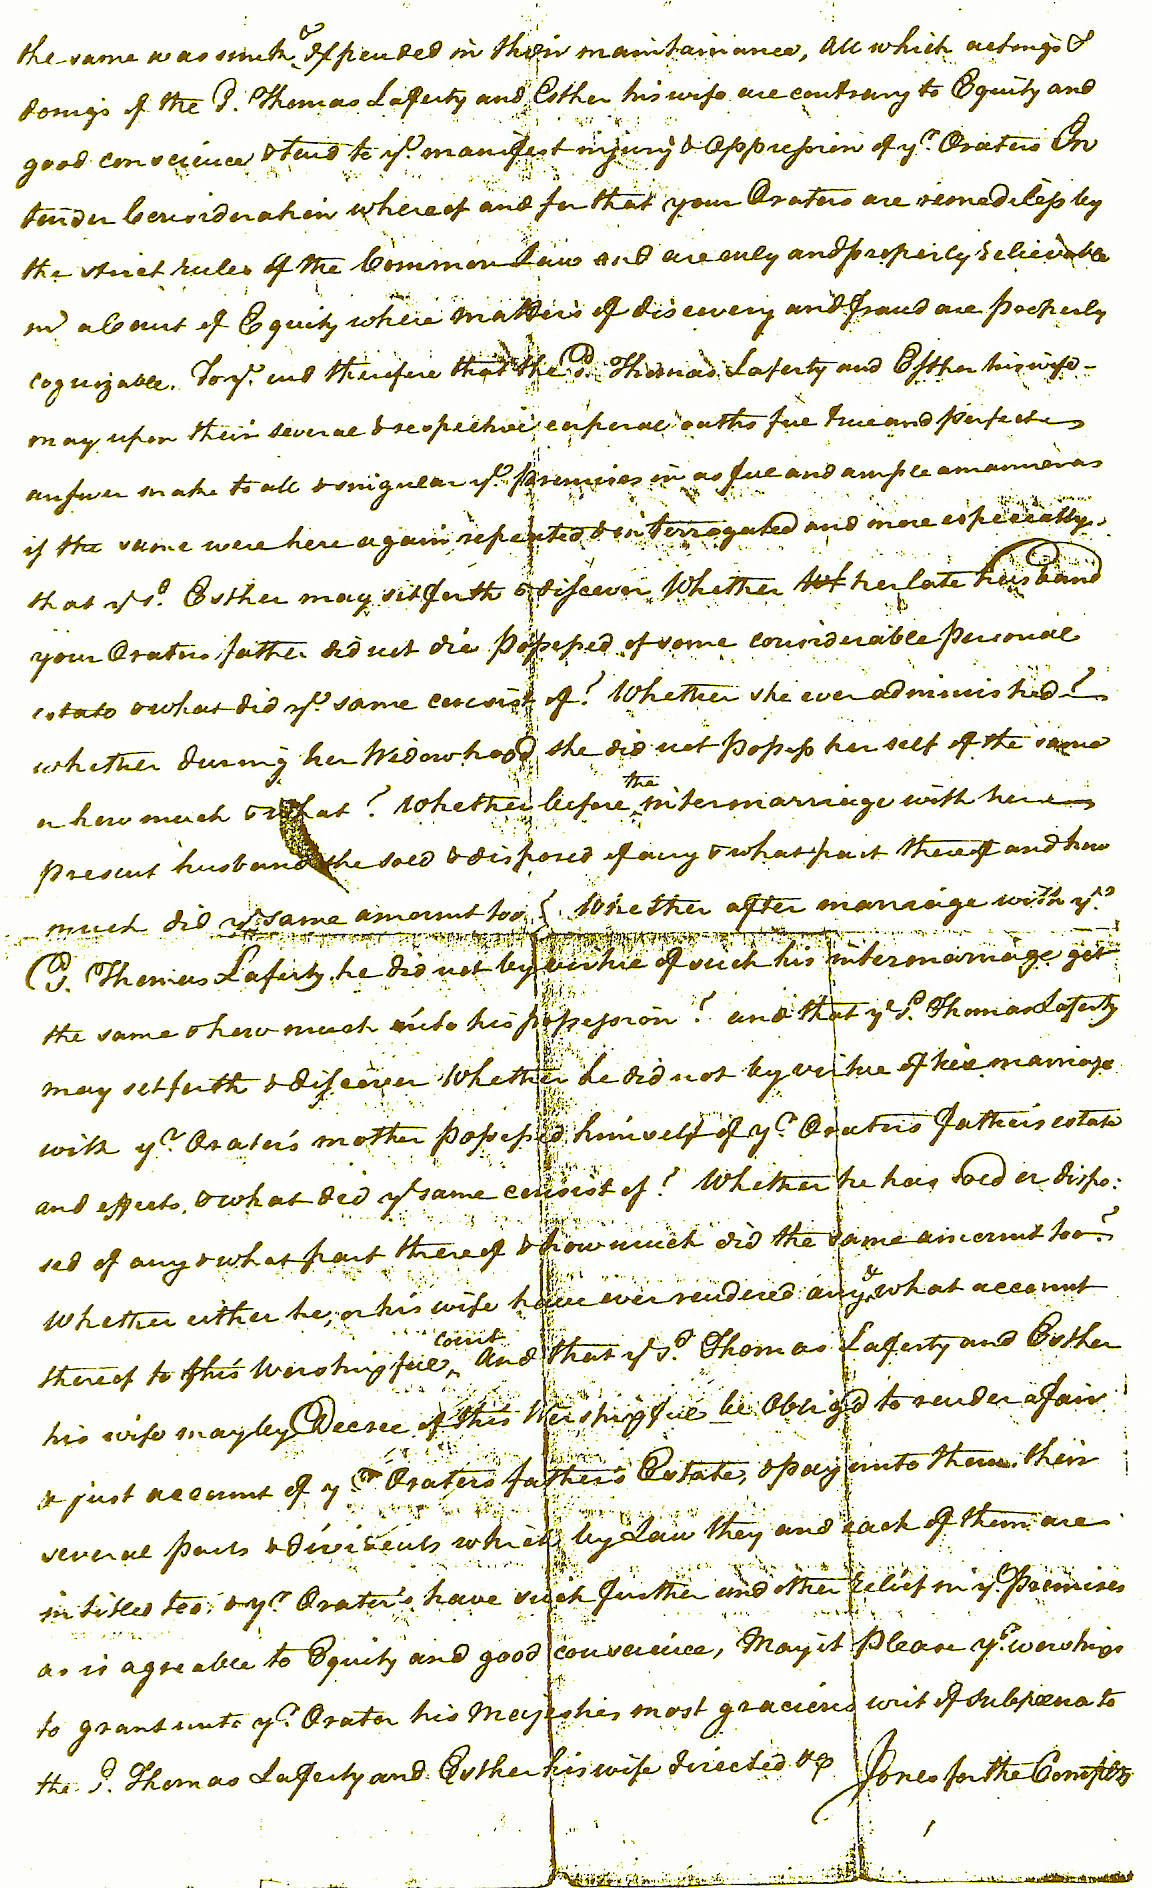 the same was much expended in their maintainance, All which actings &
doings of the Sd. Thomas Laferty and Esther his wife are contrary to Equity and
good conscience & tend to ye. manifest injury & Oppression of yr. Orators In
tender Consideration whereof and for that your Orators are remediless by
the strict rules of the Common Law and are only and properly relievable
in a Court of Equity where matters of discovery and fraud are properly
cognizable. To ye. end therefore that the Sd. Thomas Laferty and Esther his wife
may upon their several & respective corporal oaths full true and perfect
answer make to all & singular ye. premises in as full and ample a manner as
if the same were here again repeated & interrogated and more especially
that ye sd. Esther may set forth & discover Whether her late husband
your Orators father did not die possessed of some considerable personal
estate & what did ye. same consist of? Whether she ever administred?
whether during her Widowhood she did not possess her self of the same
& how much & what? Whether before the intermarriage with her
present husband she sold & disposed of any & what part thereof and how
much did ye same amount too? Whether after marriage with ye.
Sd. Thomas Laferty, he did not by virtue of such his intermarriage get
the same & how much into his possession? and that ye Sd. Thomas Laferty
may set forth & discover Whether he did not by virtue of his marriage
with yr. Orator's mother possessed himself of yr. Orators Father's estate
and effects, & what did ye same consist of? Whether he has sold or dispo:
sed of any & what part thereof & how much did the same amount too?
Whether either he, or his wife have ever rendered any & what account
thereof to this Worshipful court, And that ye sd. Thomas Laferty and Esther
his wife may by Decree of this Worshipful be Obliged to render a fair
& just account of yr. Orators father's Estate, & pay unto them their
several parts & dividents which by Law they and each of them are
intitled too; & yr. Orator's have such further and other relief in ye. premises
as is agreable to Equity and good conscience, May it Please yr. worships
to grant unto yr. Orator his Majesties most gracious writ of subpœna to
the Sd. Thomas Laferty and Esther his wife directed &c
Jones for the Complts